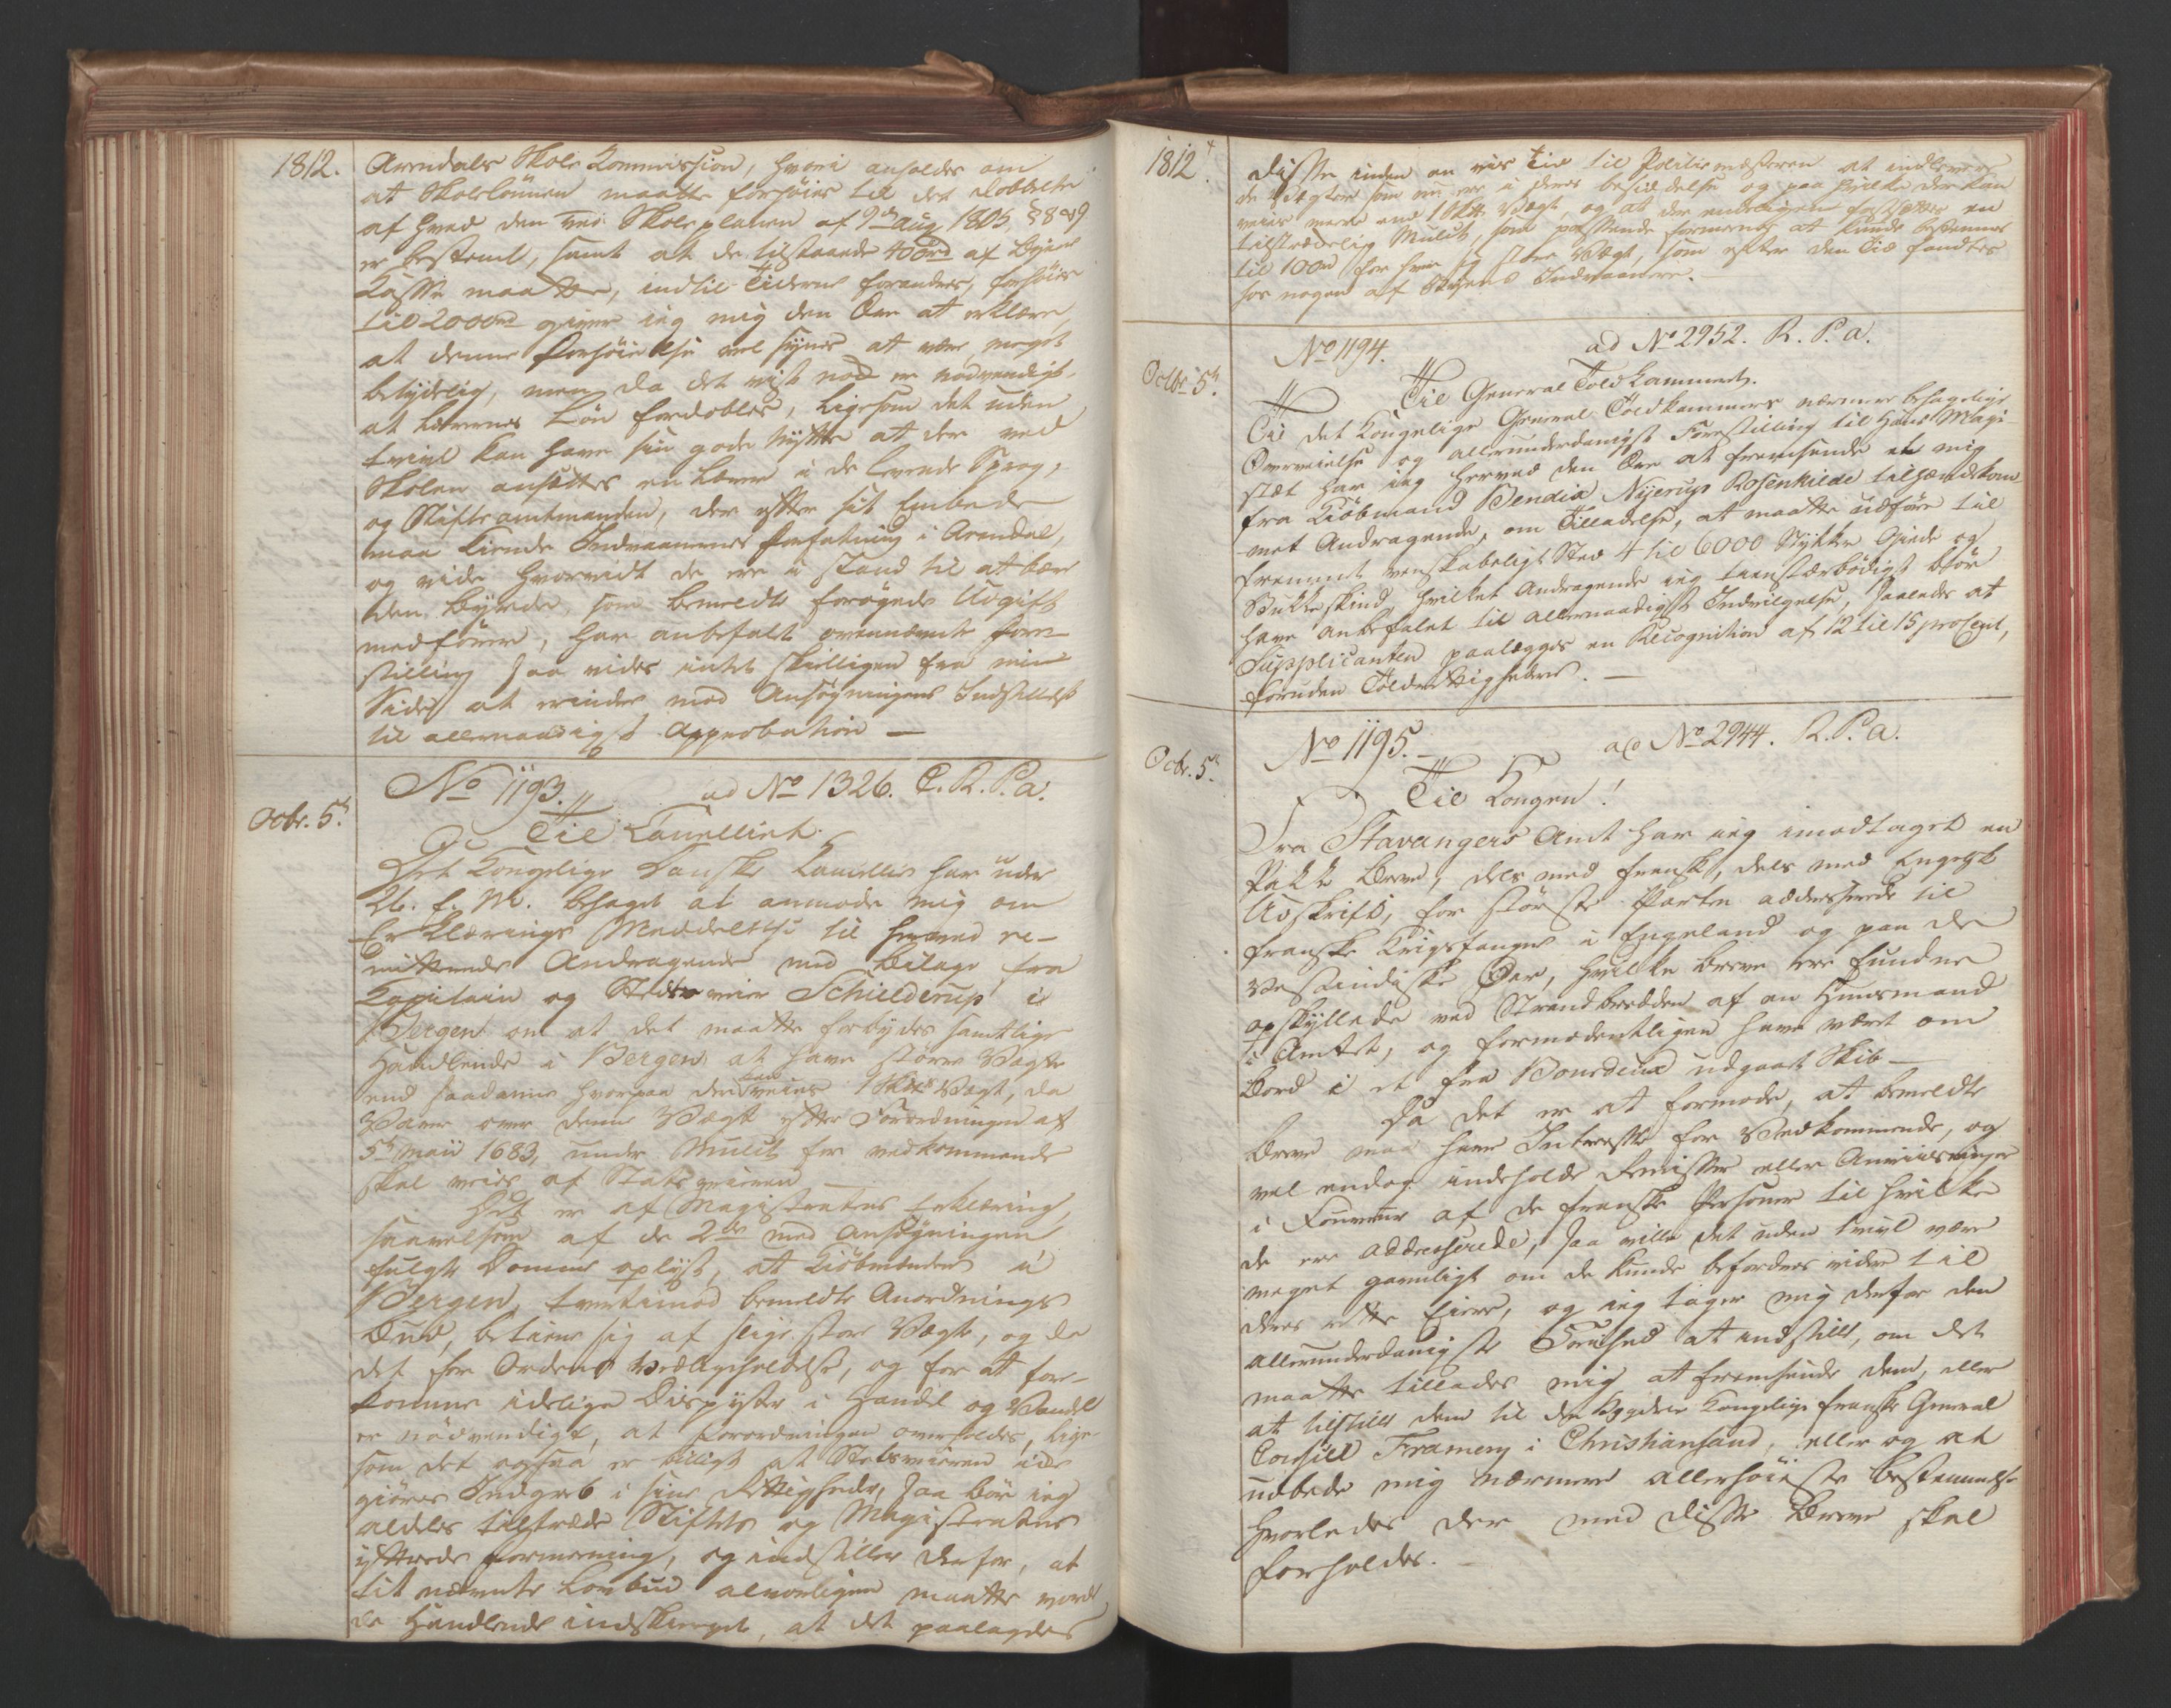 1812.
Arendals Skole Commission, hvori anholdes om
at Skolelønnen maatte forhøies til det dobbelte
af hvad den ved Skoleplanen af 9de Aug. 1805, § 8 & 9
er bestemt, samt at de tilstaaede 400rd af Byens
Kasse maatte, indtil Tiderne forandres, forhøies
til 2000rd giver jeg mig den Ære at erklære,
at denne Forhøielse vel synes at være meget
betydelig, men da det vist nok er nødvendigt,
at Lærernes Løn fordobles, ligesom det uden
tvivl kan have sin gode Nytte at der ved
Skolen ansættes en Lærer i de levende Sprog,
og Stiftamtmanden, der efter sit Embede
maa kiende Indvaanernes Forfatning i Arendal,
og vide hvorvidt de ere i stand til at bære
den Byrde, som bemeldte forøgede Udgift
medfører, har anbefalt ovennævnte Fore-
stilling saa vides intet skielligen fra min
Side at erindre mod Ansøgningens Indstillelse
til allernaadigst Approbation —
Octbr. 5te
No 1193. ad No 1326. C. R. P. a.
Til Cancelliet.
Det Kongelige Danske Cancellie har under
26. f. M. behaget at anmode mig om
Erklærings Meddelelse til hermed re-
mitterende Andragende med Bilage fra
Kapitain og Stadsveier Schielderup i
Bergen om at det maatte forbydes samtlige
Handlende i Bergen at have større Vægte
end saadanne hvorpaa der kan veies 1 Skts Vægt, da
Varer over denne Vægt efter Forordningen af
5te Maii 1683, under Mulct for vedkommende
skal veies af Stadsveieren
Det er af Magistratens Erklæring,
saavelsom af de 2de med Ansøgningen
fulgte Domme oplyst, at Kiøbmændene i
Bergen, tvertimod bemeldte Anordnings
Bud, betiene sig af slige store Vægte, og da
det for Ordens Vedligeholdelse, og for at fore-
komme idelige Disputer i Handel og Vandel
er nødvendigt, at Forordningen overholdes, lige-
som det ogsaa er billigt at Stadsveieren ei
giøres Indgreb i sine Rettigheder, saa bør jeg
aldeles tiltræde Stiftets og Magistratens
yttrede Formening, og indstiller derfor, at
tit nævnte Lovbud alvorligen maatte vorde
de Handlende indskærpet, at det paalagdes
1812.
disse inden en vis Tid til Politiemesteren at indlevere
de Vægter som nu ere i deres besiddelse og paa hvilke der kan
veies mere end 1 Skts Vægt, og at der endeligen fastsættes en
tilstrækkelig Mulct, som passende formenes at kunde bestemmes
til 100rd for hver sig stor Vægt, som efter den Tid fandtes
hos nogen af Byens Indvaanere.
Octbr 5te
No 1194. ad No 2952. R. P. a.
Til General Toldkammeret.
Til det Kongelige General Toldkammers nærmere behagelige
Overveielse og allerunderdanigst Forestilling til Hans Maje-
stæt har jeg herved den Ære at fremsende et mig
fra Kiøbmand Bendix Nyerup Rosenkilde tilhændekom-
met Andragende, om Tilladelse, at maatte udføre til
fremmet venskabeligt Sted 4 til 6000 Stykker Giede og
Bukkeskind, hvilket Andragende jeg tienstærbødigst bør
have anbefalet til allernaadigst Indvilgelse, saaledes at
Supplicanten paalægges en Recognition af 12 til 15 proCent,
foruden Toldrettigheder. —
Octbr. 5te
No 1195. ad No 2944. R. P. a.
Til Kongen!
Fra Stavangers Amt har jeg imodtaget en
Pakke Breve, dels med fransk, dels med Engelsk
Udskrift, for største Parten addresserede til
franske Krigsfanger i Engeland og paa de
Vestindiske Øer, hvilke Breve ere fundne
opskyllede ved Strandbredden af en Huusmand
i Amtet, og formodentligen have været om
Bord i et fra Bourdeux udgaaet Skib —
Da det er at formode, at bemeldte
Breve maa have Interesse for Vedkommende, og
vel endog indeholde Remisser eller Anviisninger
i Faveur af de franske Personer til hvilke
de ere addresserede, saa ville det uden tvivl være
meget gavnligt om de kunde befordres videre til
deres rette Eiere, og jeg tager mig derfor den
allerunderdanigste Friehed at indstille, om det
maatte tillades mig at fremsende dem, eller
at tilstille dem til den Keyserlige Kongelige franske General
Consul Framery i Christiansand, eller og at
udbede mig nærmere allerhøieste bestemmelse
hvorledes der med disse Breve skal
forholdes. —